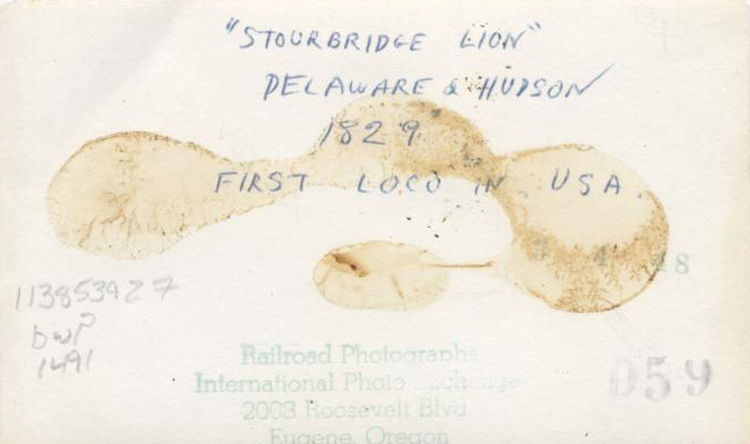 "STOURBRIDGE LION"
DELAWARE & HUDSON
1829
FIRST LOCO IN USA.
48
113853927
DWP
1491
Railroad Photographs
International Photo Exchange
2003 Roosevelt Blvd
Eugene, Oregon
059